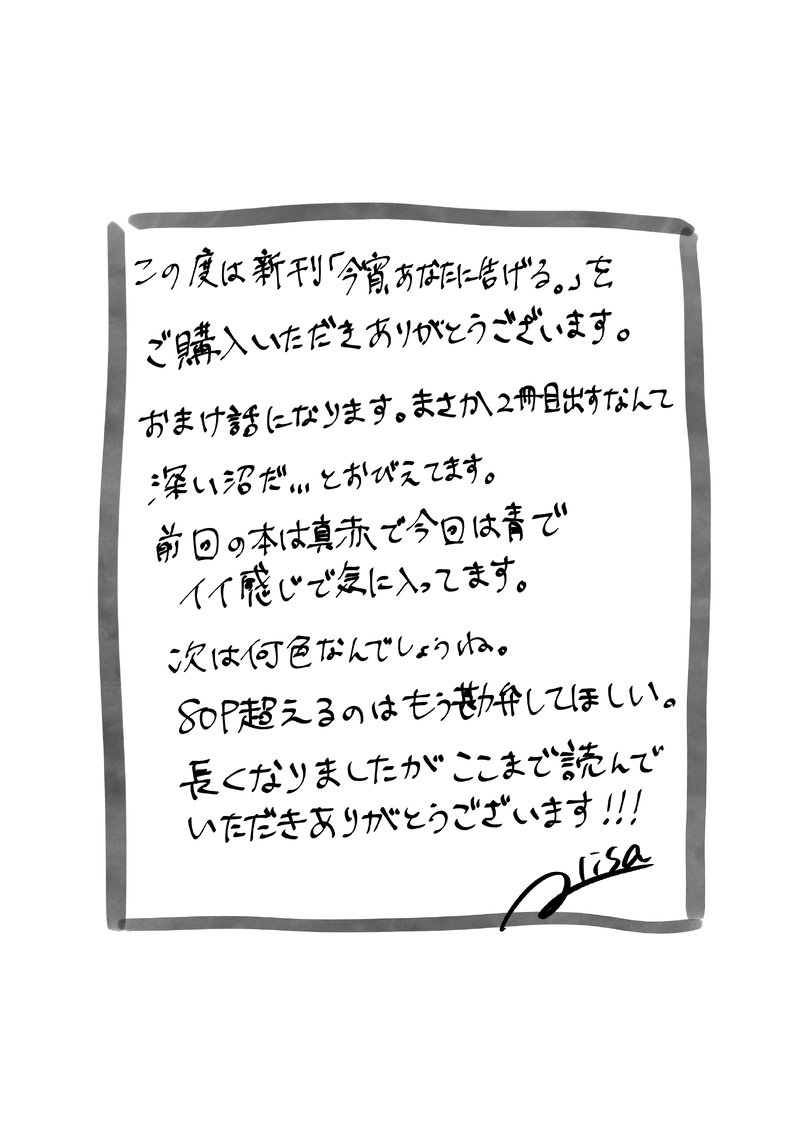 この度は新刊「今宵、あなたに告げる。」を
ご購入いただきありがとうございます。
おまけ話になります。まさか2冊目出すなんて
深い沼だ...とおびえてます。
前回の本は真赤で今回は青で
イイ感じで気に入ってます。
次は何色なんでしょうね。
80P超えるのはもう勘弁してほしい。
長くなりましたがここまで読んで
いただきありがとうございます!!!
Arisa